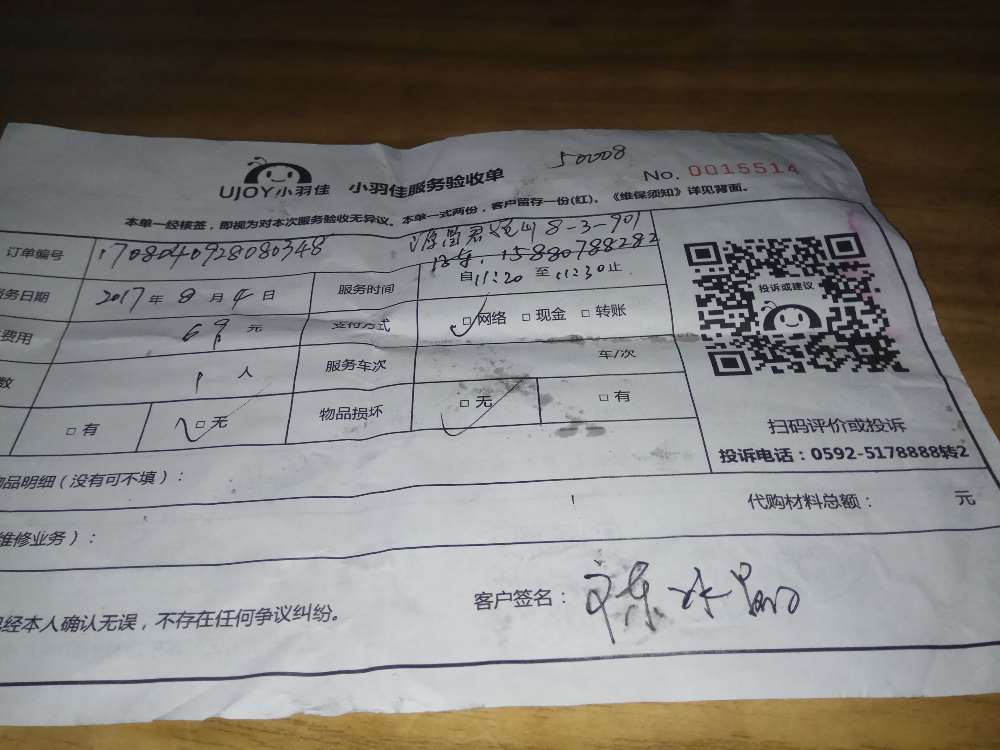 50008
UJOY小羽佳 小羽佳服务验收单
No. 0015514
本单一经核签，即视为对本次服务验收无异议。本单一式两份，客户留存一份(红)。《维保须知》详见背面。
订单编号 1708040928080348
8-3-901
15880788282
务日期 2017年8月4日 服务时间 自11:20至11:30止
费用 69元 支付方式 □网络 □现金 □转账
数 1人 服务车次 车/次
□有 □无 物品损坏 □无 □有
投诉或建议
扫码评价或投诉
投诉电话：0592-5178888转2
品明细（没有可不填）：
代购材料总额： 元
维修业务）：
经本人确认无误，不存在任何争议纠纷。
客户签名：